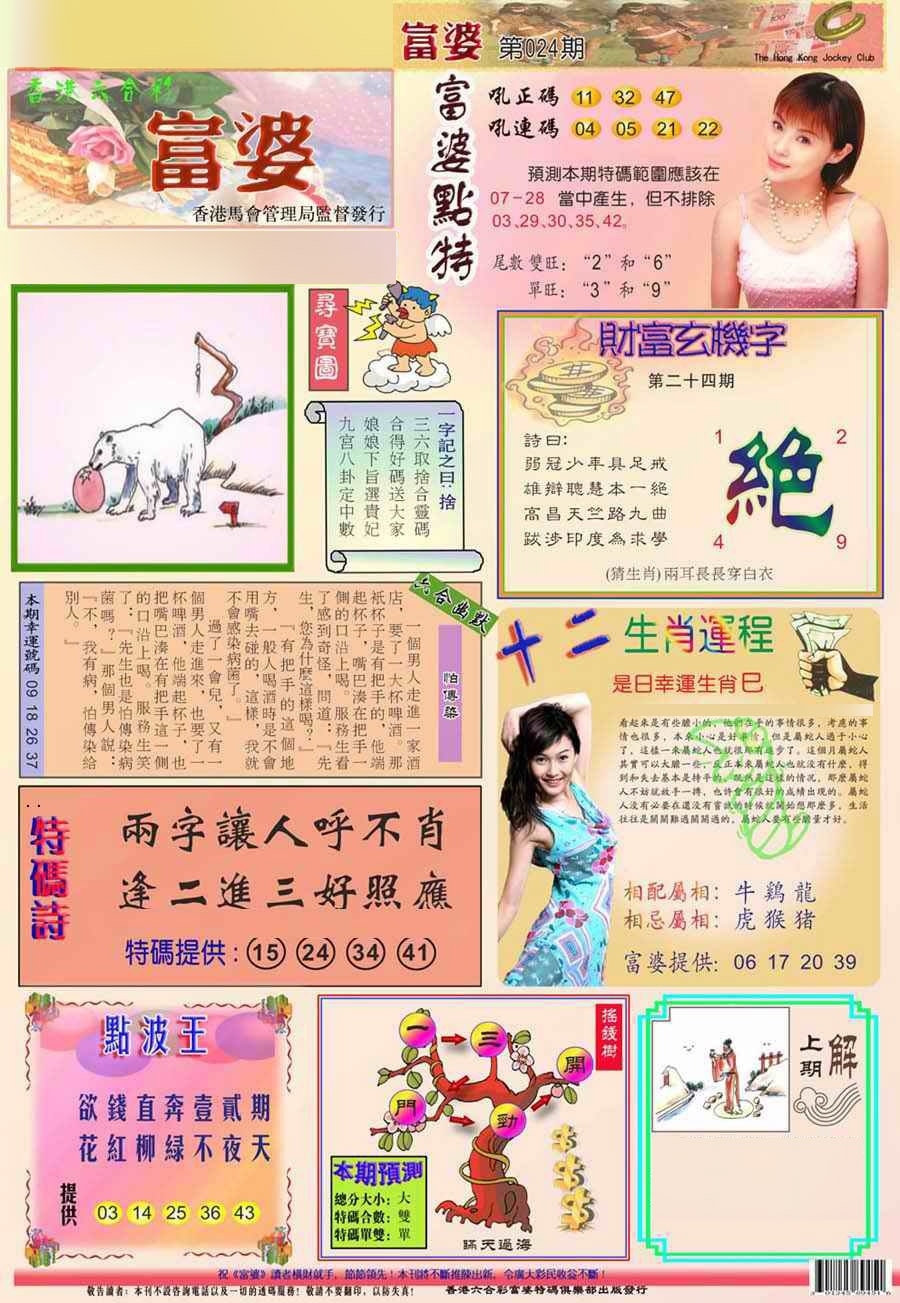 富婆 第024期
The Hong Kong Jockey Club
香港六合彩
富婆
香港馬會管理局監督發行
富婆點特
吼正碼 11 32 47
吼連碼 04 05 21 22
預測本期特碼範圍應該在
07-28 當中產生，但不排除
03、29、30、35、42。
尾數雙旺：“2”和“6”
單旺：“3”和“9”
尋寶圖
一字記之曰：捨
三六取捨合靈碼
合得好碼送大家
娘娘下旨選貴妃
九宮八卦定中數
財富玄機字
第二十四期
詩曰:
弱冠少年具足戒
雄辯聰慧本一絕
高昌天竺路九曲
跋涉印度為求學
1 2
絕
4 9
(猜生肖)兩耳長長穿白衣
六合幽默
怕傳染
一個男人走進一家酒
店，要了一大杯啤酒。那
衹杯子是有把手的，他端
起杯子，嘴巴湊在把手一
側的口沿上喝。服務生看
了感到奇怪，問道：『先
生，您為什麼這樣喝？』
『有把手的這個地
方，一般人喝酒時是不會
用嘴去碰的，這樣，我就
不會感染病菌了。』
過了一會兒，又有一
個男人走進來，也要了一
杯啤酒，他端起杯子，也
把嘴巴湊在有把手這一側
的口沿上喝。服務生笑
了：『先生也是怕傳染病
菌嗎？』那個男人說：
『不，我有病，怕傳染給
別人。』
本期幸運號碼 09 18 26 37
十二生肖運程
是日幸運生肖巳
看起來是有些膽小的，他們在乎的事情很多，考慮的事
情也很多，本來小心是好事情，但是屬蛇人過于小心
了，這樣一來屬蛇人也就很那有進步了。這個月屬蛇人
其實可以大膽一些，反正本來屬蛇人也就沒有什麼，得
到和失去基本是持平的。既然是這樣的情況，那麼屬蛇
人不妨就放手一搏，也許會有很好的成績出現的。屬蛇
人沒有必要在還沒有嘗試的時候就開始想那麼多，生活
往往是關關難過關關過的，屬蛇人要有些膽量才好。
相配屬相：牛 鷄 龍
相忌屬相：虎 猴 猪
富婆提供：06 17 20 39
特碼詩
兩字讓人呼不肖
逢二進三好照應
特碼提供：15 24 34 41
點波王
欲錢直奔壹貳期
花紅柳綠不夜天
提供 03 14 25 36 43
搖錢樹
一 三 開
門 勁
本期預測
總分大小：大
特碼合數：雙
特碼單雙：單
瞞天過海
上期解
祝《富婆》讀者橫財就手，節節領先！本刊將不斷推陳出新，令廣大彩民收益不斷！
敬告讀者：本刊不設咨詢電話以及一切的透碼服務！敬請不要翻印，以防失真！ 香港六合彩富婆特碼俱樂部出版發行